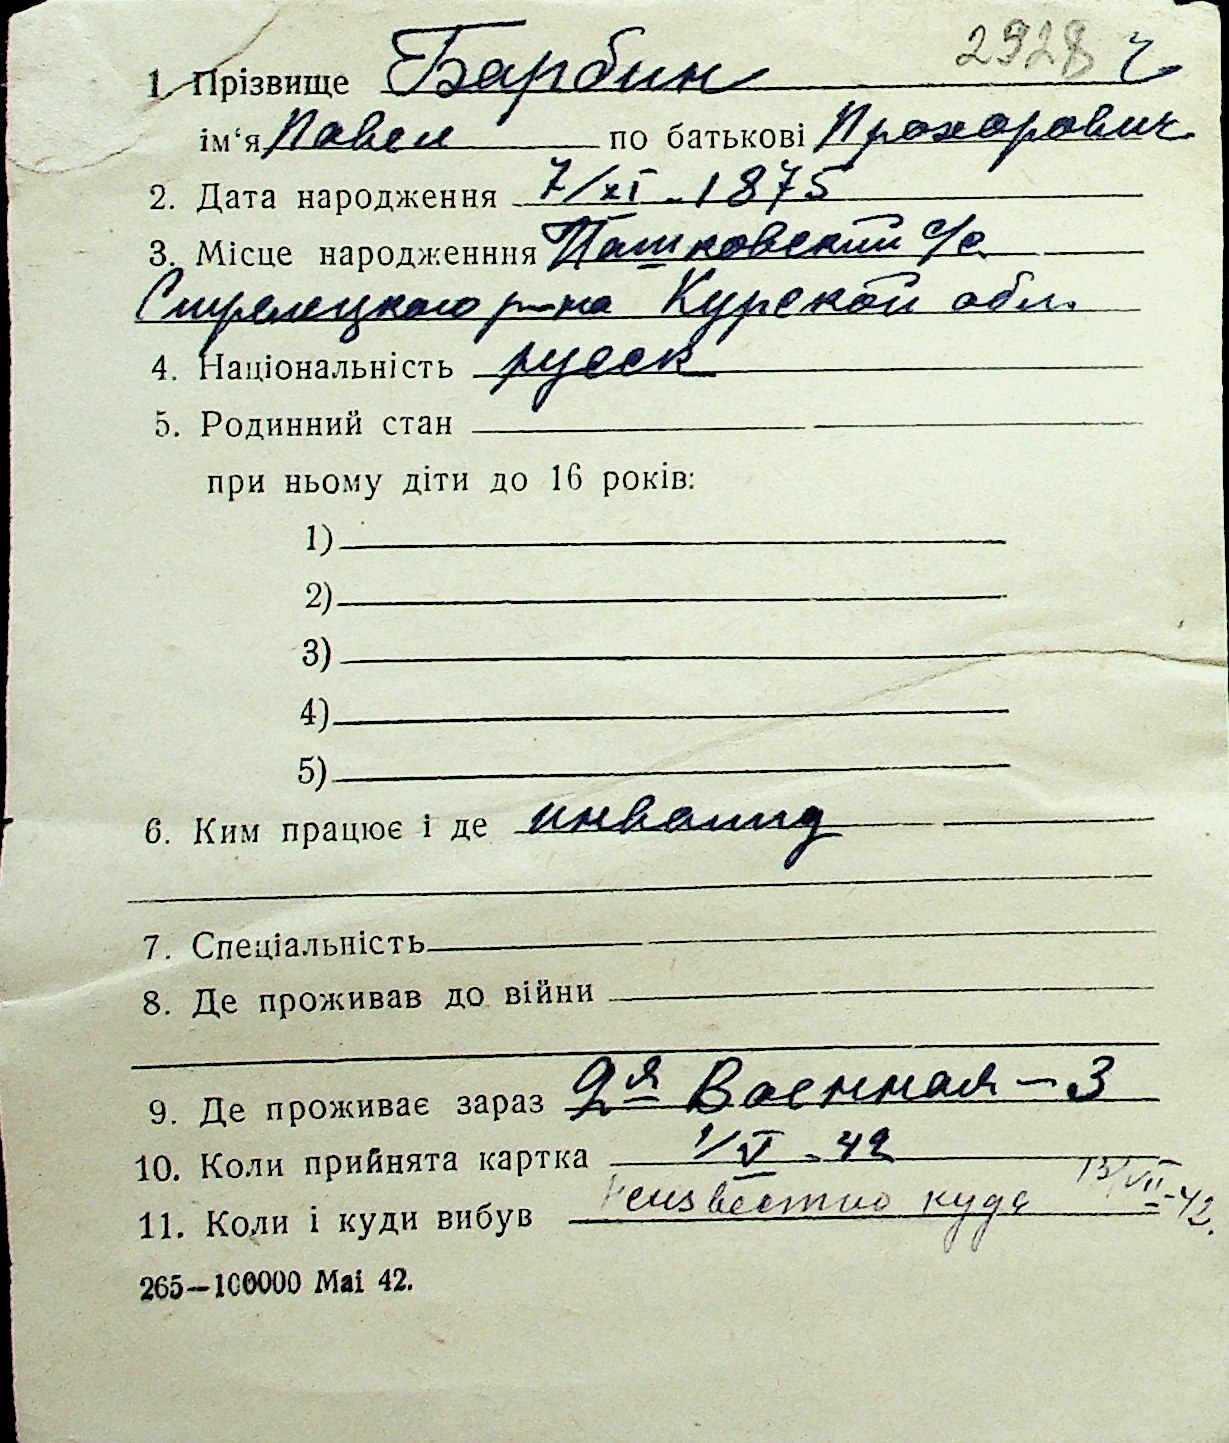 2928 ч
1. Прізвище Барбин
ім‘я Павел по батькові Прохорович
2. Дата народження 7/XI - 1875
3. Місце народженння Пашковский с/с
Стрелецкого р-на Курской обл.
4. Національність русск
5. Родинний стан
при ньому діти до 16 років:
1)
2)
3)
4)
5)
6. Ким працює і де инвалид
7. Спеціальність
8. Де проживав до війни
9. Де проживає зараз 2я Военная – 3
10. Коли прийнята картка 1/V - 42
11. Коли і куди вибув Неизвестно куда 13/VII-42.
265—100000 Mai 42.